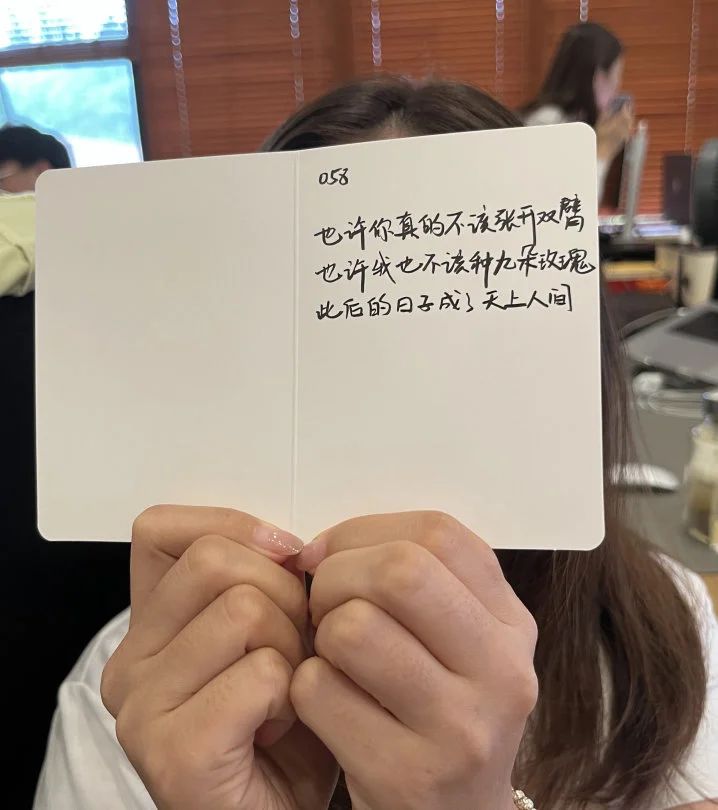 058
也许你真的不该张开双臂
也许我也不该种九朵玫瑰
此后的日子成了天上人间